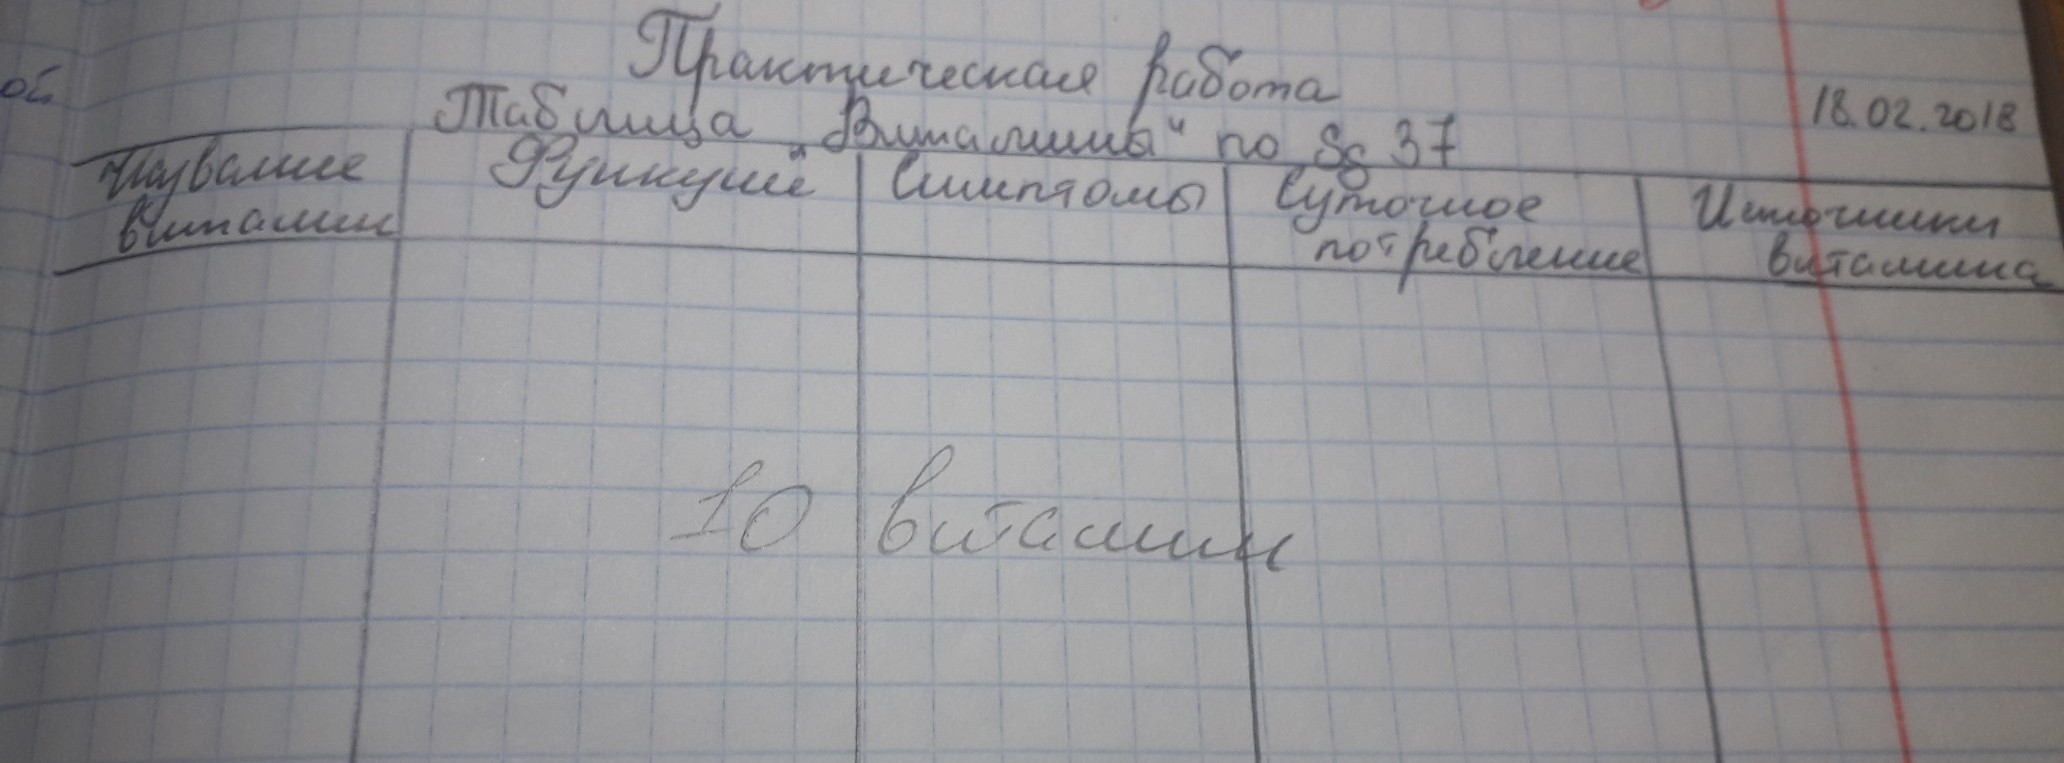 ой
Практическая работа
18.02.2018
Таблица "Витамины" по § 37
Название витамин
Функции
Симптомы
Суточное потребление
Источники витамина
10 витамин